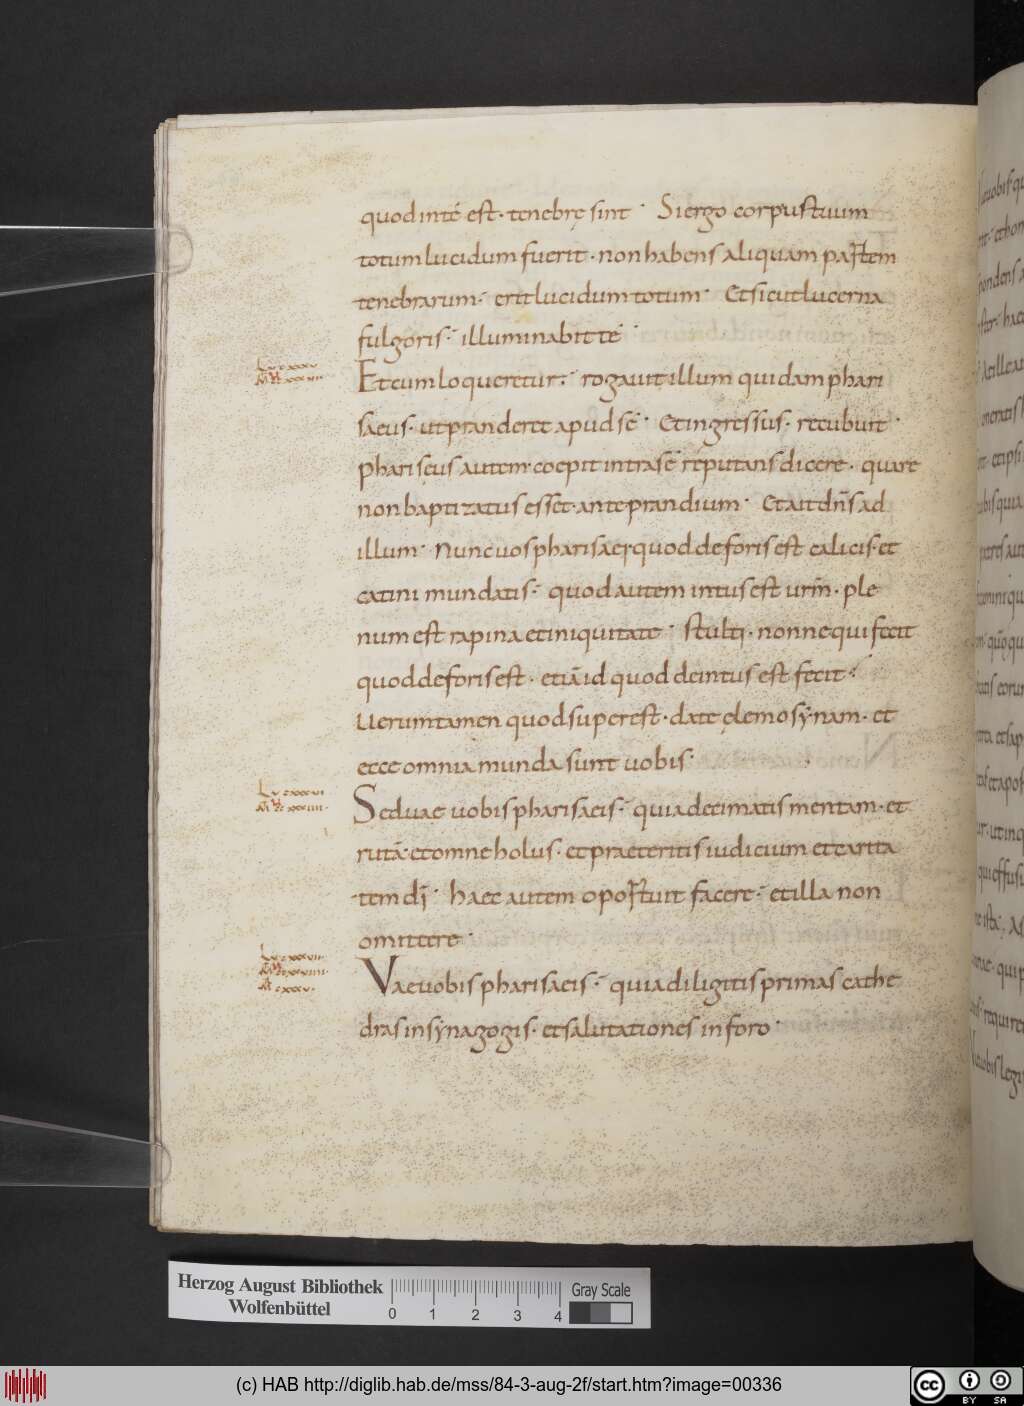 quod in té est· tenebrę sint· Si ergo corpus tuum
totum lucidum fuerit· non habens aliquam partem
tenebrarum· erit lucidum totum· Et sicut lucerna
fulgoris· illuminabit té·
Lu cxxxv
Mt ccxxxvii
Et cum loqueretur· rogauit illum quidam phari
saeus· ut pranderet apud sé· Et ingressus· recubuit·
Phariseus autem· coepit intra sé reputans dicere· quare
non baptizatus esset· ante prandium· Et ait dn̄s ad
illum· Nunc uos pharisaei· quod deforis est calicis· et
catini mundatis· quod autem intus est urm̄· ple
num est rapina et iniquitate· Stulti· nonne qui fecit
quod deforis est· etiā id quod deintus est fecit·
Uerumtamen quod superest· date elemosynam· et
ecce omnia munda sunt uobis·
Lu cxxxvi
Sed uae uobis pharisaeis· quia decimatis mentam· et
rutā· et omne holus· et praeteritis iudicium et carita
tem dī· haec autem oportuit facere· et illa non
omittere·
Lu cxxxvii
Vae uobis pharisaeis· quia diligitis primas cathe
dras in synagogis· et salutationes in foro·
Herzog August Bibliothek
Wolfenbüttel
0 1 2 3 4
Gray Scale
(c) HAB http://diglib.hab.de/mss/84-3-aug-2f/start.htm?image=00336
cc BY SA